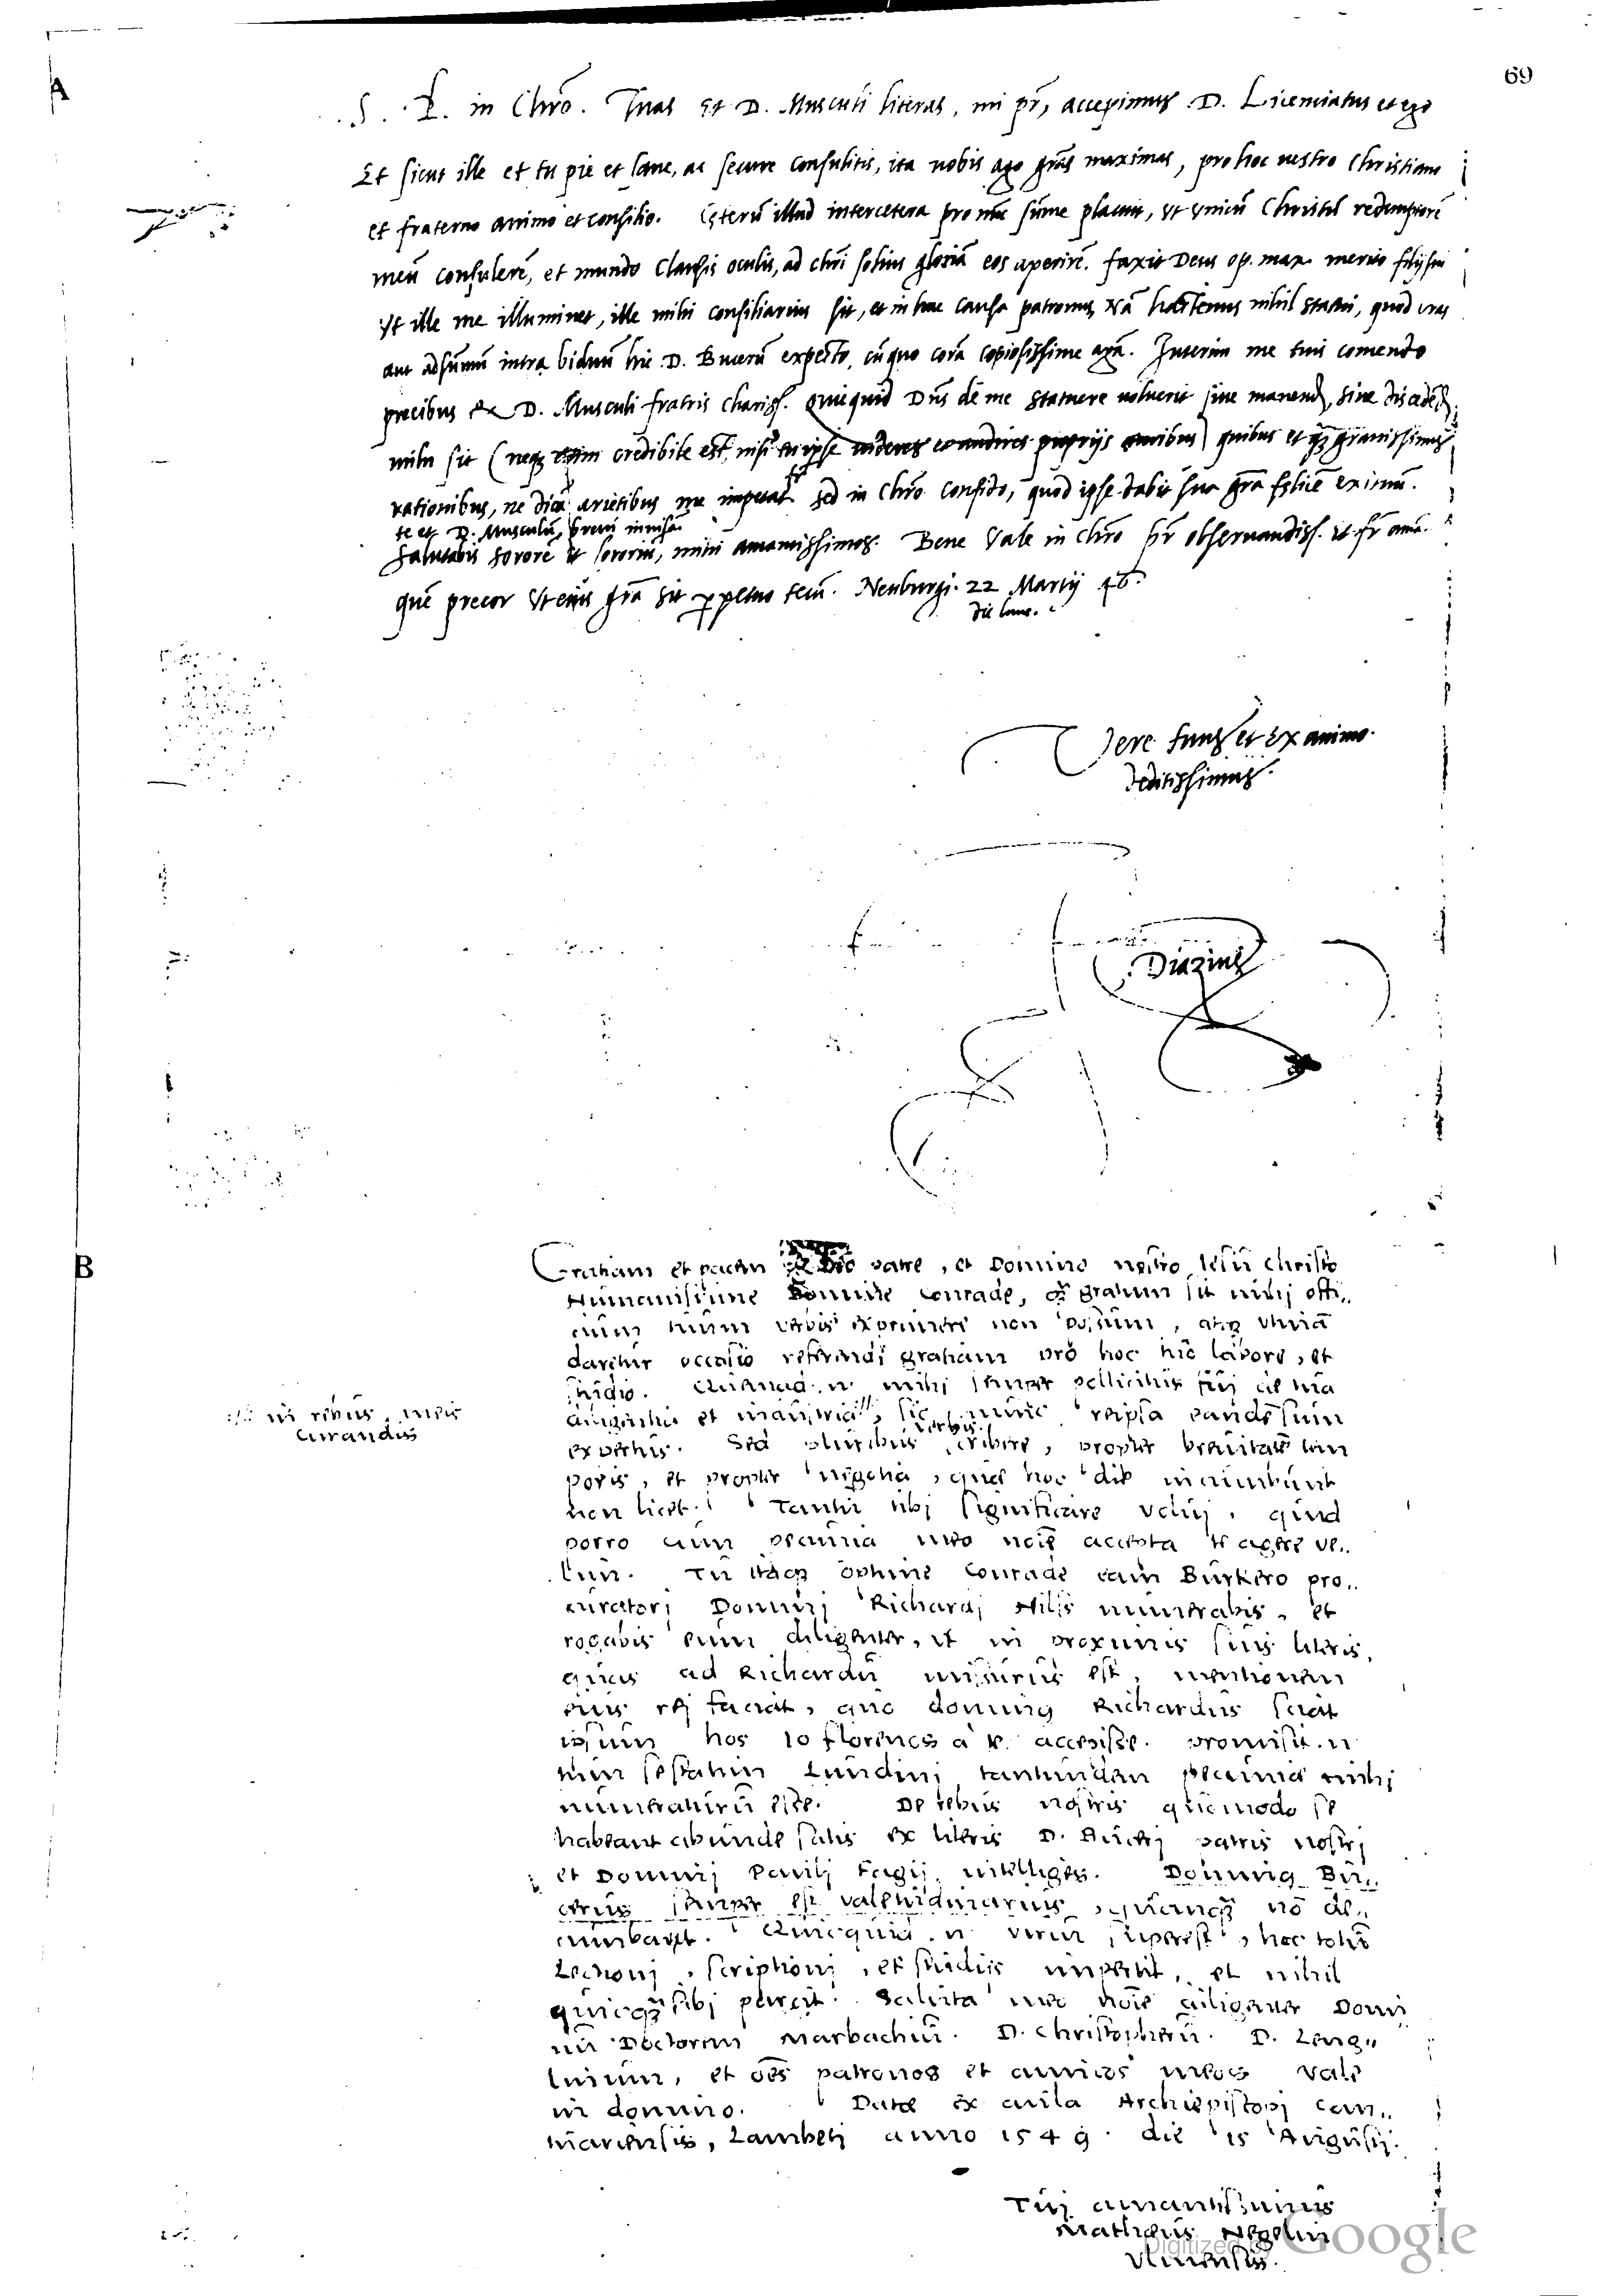 69
A
S. P. in Chrō. Tuas et D. Musculi literas, mi pr̄, accepimus D. Licenciatus et ego
Et sicut ille et tu pie et sane, ac secure consulitis, ita vobis ago grās maximas, pro hoc vestro Christiano
et fraterno animo et consilio. Ceterū illud inter cetera pro nūc sūme placuit, ut unicū Christū redemptorē
meū consulerē, et mundo clausis oculis, ad chrī solius gloriā eos aperirē. faxit Deus op. max. merito filij sui
ut ille me illuminet, ille mihi consiliarius sit, et in hac causa patronus Nā hactenus nihil statui, quod cras
aut ad sūmū intra biduū hic D. Bucerū expecto, cū quo corā copiosissime agā. Interim me tuis comendo
precibus et D. Musculi fratris chariss. Quicquid Dn̄s de me statuere voluerit sive manend, sive discedēd,
mihi sit (neq; enim credibile est, nisi tu ipse videres et audires proprijs auribus) quibus et q̄ gravissimis
rationibus, ne dicā arietibus me impetat. sed in chrō confido, quod ipse dabit sua grā felicē exitum.
te et D. Musculū, brevi invisā.
Salutabis sororē et sororiū, mihi amantissimos. Bene vale in chrō pr̄ observandiss. et fr̄ amā.
quē precor ut eius grā sit perpetuo tecū. Neuburgi. 22 Martij 46.
die lune.
Vere tuus et ex animo
deditissimus.
Diazius
B
Gratiam et pacem a Deo patre, et Domino nostro Iesu Christo
Humanissime Domine Conrade, q̄ gratum sit mihj offi..
cium tuum verbis exprimere non possum, atq; utinā
daretur occasio referendj gratiam pro hoc tuo labore, et
studio. Quemad. n. mihj semper pollicitus fuj de tua
diligentia et industria'', sic nunc reipsa eandē sum
in rebus meis
curandis
verbis
expertus. Sed pluribus scribere, propter brevitatē tem
poris, et propter negotia, quae hoc die incumbunt
non licet. Tantū tibj significare voluj, quid
porro cum pecunia meo noīe accepta te agere ve..
lim. Tu itaq; optime Conrade eam Burkero pro..
curatorj Dominj Richardj Hilis numerabis, et
rogabis eum diligenter, ut in proximis suis literis,
quas ad Richardū missurus est, mentionem
eius rej faciat, quo dominus Richardus sciat
ipsum hos 10 florenos a te accepisse. promisit. n
tum se statim Lundinj tantundem pecuniae mihj
numeraturū esse. De rebus nostris quomodo se
habeant abunde satis ex literis D. Bucerj patris nostrj
et Dominj Paulj Fagij intelliges. Dominus Bu..
cerus semper est valetudinarius, quanq̄ nō de..
cumbat. Quicquid. n virīū superest, hoc totū
Lectionj, scriptionj, et studijs impertit, et nihil
quicq̄ sibj parcit. Saluta meo noīe diligenter Domi
nū Doctorem Marbachiū. D. Christopherū. D. Leng..
linium, et oēs patronos et amicos meos Vale
in domino. Datae ex aula Archiepiscopj Can..
tuariensis, Lambeti anno 1549. die 15 Augustj.
Tuj amantissimus
Matheus Negelin
Ulmensis.
Digitized by Google